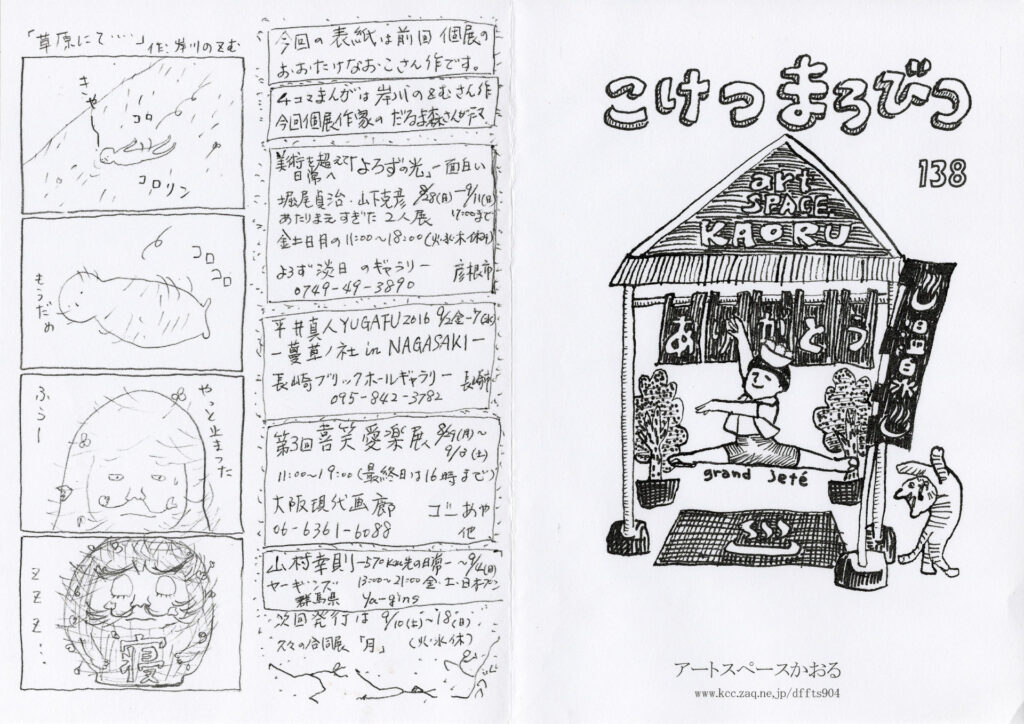 「草原にて‥‥」作:岸川のぞむ
きゃー
コロ
コロリン
コロ
コロ
もうだめ
やっと止まった
ふぅー
ZZZ…
寝
今回の表紙は前回個展の
おおたけなおこさん作です。
4コマまんがは岸川のぞむさん作
今回個展作家のだるま森さんがテーマ
美術を超えて「よろずの光」―面白い
日常へ
堀尾貞治・山下克彦 8/28(月)―9/11(日)
あたりまえすぎた2人展 17:00まで
金土日月の11:00〜18:00(火・水・木休み)
よろず淡日のギャラリー 彦根市
0749-49-3890
平井真人YUGAFU2016 9/2金-7(水)
―蔓草ノ社 in NAGASAKI―
長崎ブリックホールギャラリー 長崎市
095-842-3782
第3回 喜笑愛楽展 8/29(月)〜
9/10(土)
11:00〜19:00(最終日は16時まで)
大阪現代画廊 ゴトあや
06-6361-6088 他
山村幸則―570km先の日常―〜9/4(日)
ヤーギンズ 13:00〜21:00 金・土・日オープン
群馬県 Ya-ging
次回発行は 9/10(土)〜18(日)
久々の合同展「月」 (火・水休)
こけつまろびつ
138
art
SPACE
KAORU
ありがとう
grand Jeté
アートスペースかおる
www.kcc.zaq.ne.jp/dffts904